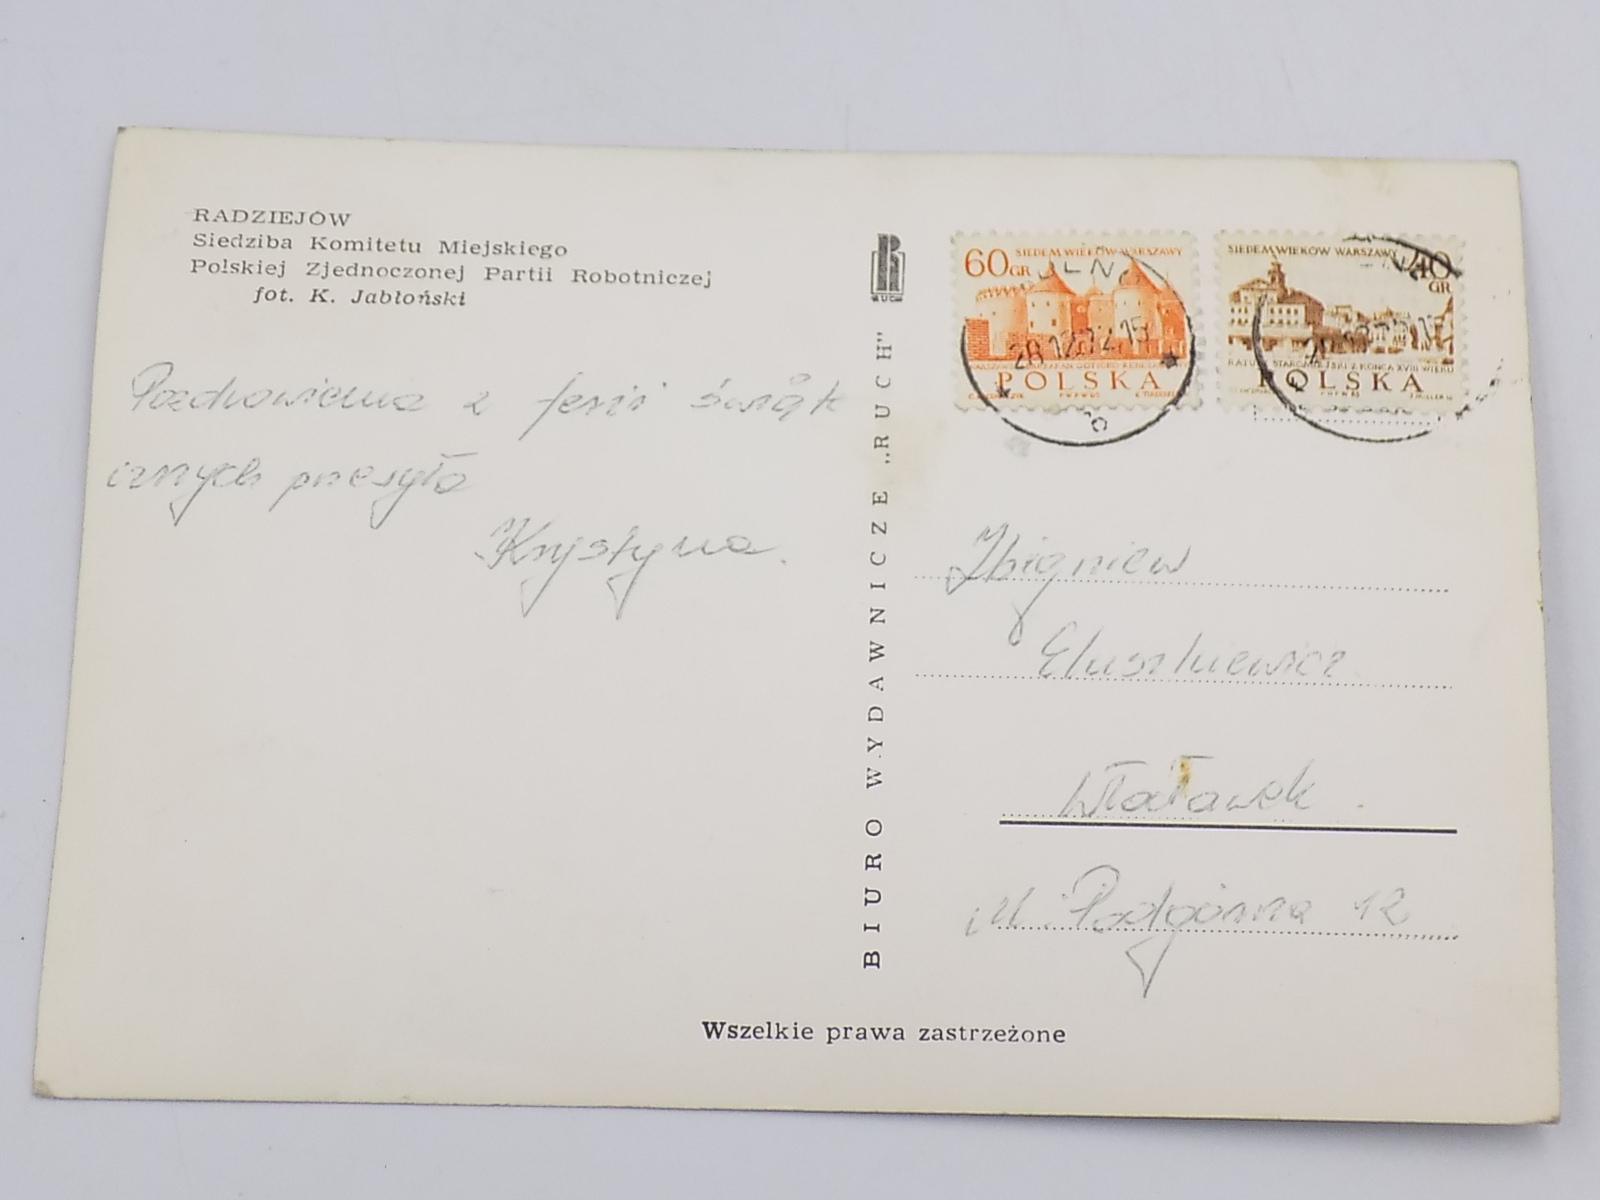 RADZIEJÓW
Siedziba Komitetu Miejskiego
Polskiej Zjednoczonej Partii Robotniczej
fot. K. Jabłoński
Pozdrowienia z ferii świąt
cznych przesyła
Krystyna.
BIURO WYDAWNICZE „RUCH”
RUCH
SIEDEM WIEKÓW WARSZAWY
60 GR
POLSKA
28.12.72.15
SIEDEM WIEKÓW WARSZAWY
40 GR
RATUSZ STAROMIEJSKI Z KOŃCA XVIII WIEKU
POLSKA
Zbigniew
Eluszkiewicz
Włocławek.
ul. Podgórna 12
Wszelkie prawa zastrzeżone